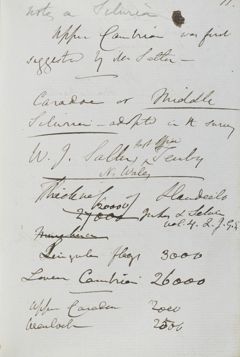 Notes on Siluria
Upper Cambrian was first
suggested by Mr Salter —
Caradoc or Middle
Silurian — adopt in the survey
W. J. Salter Post Office Tenby
N. Wales
Thickness of Llandeilo
20000
27000
vol. 4. Q. J. G. S.
Lingula flags 3000
Lower Cambrian 26000
Upper Caradoc 2000
Wenlock 2500